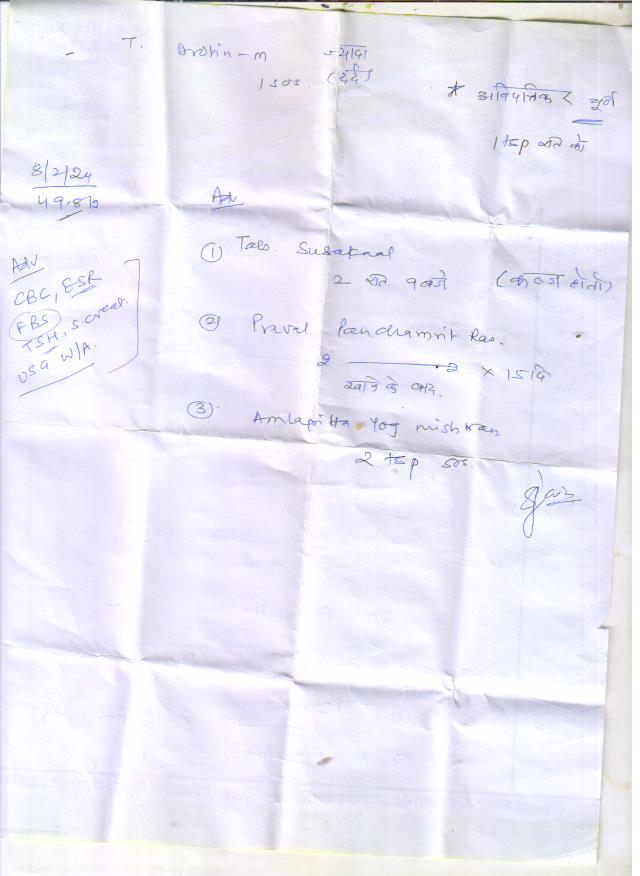 T. Drotin-m ज्यादा
1 sos. (दर्द)
* अविपत्तिकर चूर्ण
1 tsp रात को
8/2/24
49.8
Adv
Adv
CBC, ESR
FBS
TSH, S.creat.
USG W/A.
① Tabs. Susakaal
2 रात 9 बजे (कब्ज होतो)
② Praval Panchamrit Ras.
2 ——— 2 × 15 दि
खाने के बाद.
③ Amlapitta Yog mishran
2 tsp sos.